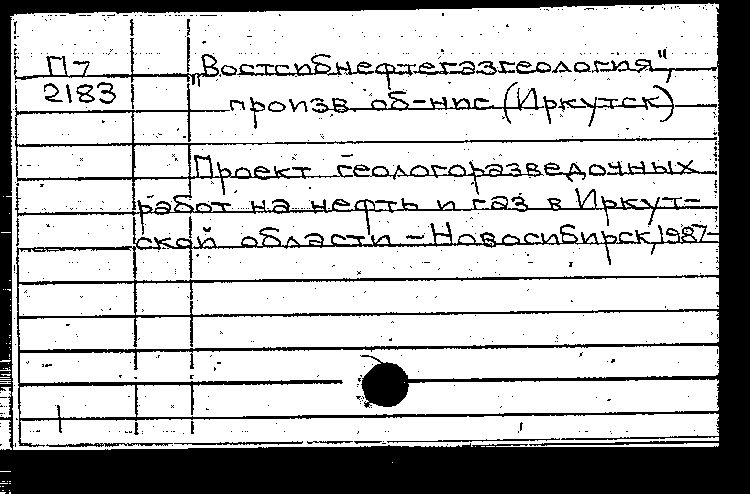 П7
2183
„Востсибнефтегазгеология",
произв. об-ние (Иркутск)
Проект геологоразведочных
работ на нефть и газ в Иркут-
ской области – Новосибирск, 1987-